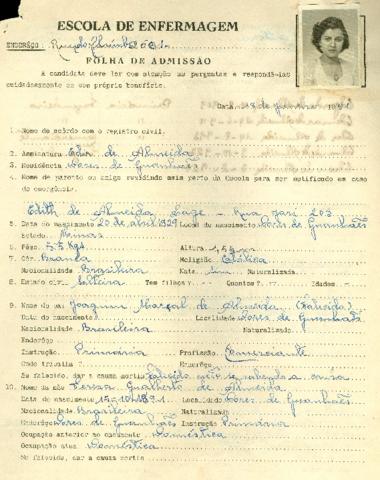 ESCOLA DE ENFERMAGEM
ENDERÊÇO:
FOLHA DE ADMISSÃO
A candidata deve ler com atenção as perguntas e respondê-las
cuidadosamente em seu próprio benefício.
Data, 18 de
1. Nome de acordo com o registro civil.
2. Assinatura de Almeida
3. Residência Dores de Guanhães
4. Nome de parente ou amigo residindo mais perto da Escola para ser notificado em caso
de emergência.
Edith de Almeida Lage - Rua 203
5. Data do nascimento 20 de abril 1929 Local do nascimento Dores de Guanhães
Estado. Minas
6. Pêso. 55 kg. Altura.
7. Côr. Branca Religião. Católica
Nacionalidade Brasileira Nata sim Naturalizada.
8. Estado civil. solteira Tem filhos? Quantos? Idades.
9. Nome do pai Joaquim Marçal de Almeida (Falecido)
Data do nascimento Localidade Dores de Guanhães
Nacionalidade Brasileira Naturalizado.
Enderêço
Instrução Primária Profissão Comerciante
Onde trabalha? Enderêço
Se falecido, dar a causa mortis Falecido sabendo a causa
10. Nome da mãe Gualberto de Almeida
Data do nascimento 15-10-1891. Localidade Dores de Guanhães
Nacionalidade Brasileira Naturalizada
Enderêço Dores de Guanhães Instrução Primária
Ocupação anterior ao casamento Doméstica
Ocupação atual Doméstica
Se falecida, dar a causa mortis